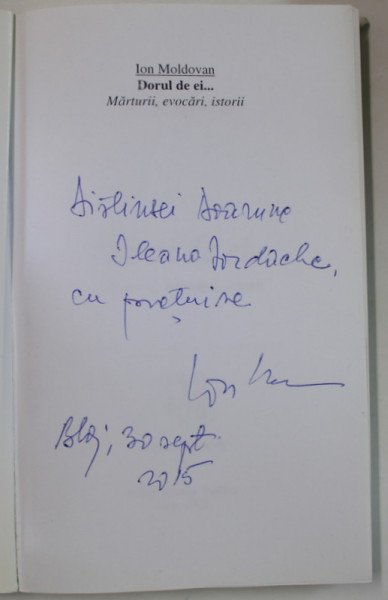 Ion Moldovan
Dorul de ei...
Mărturii, evocări, istorii
Distinsei Doamne
Ileana Iordache,
cu prețuire
Ion
Blaj, 30 sept.
2015